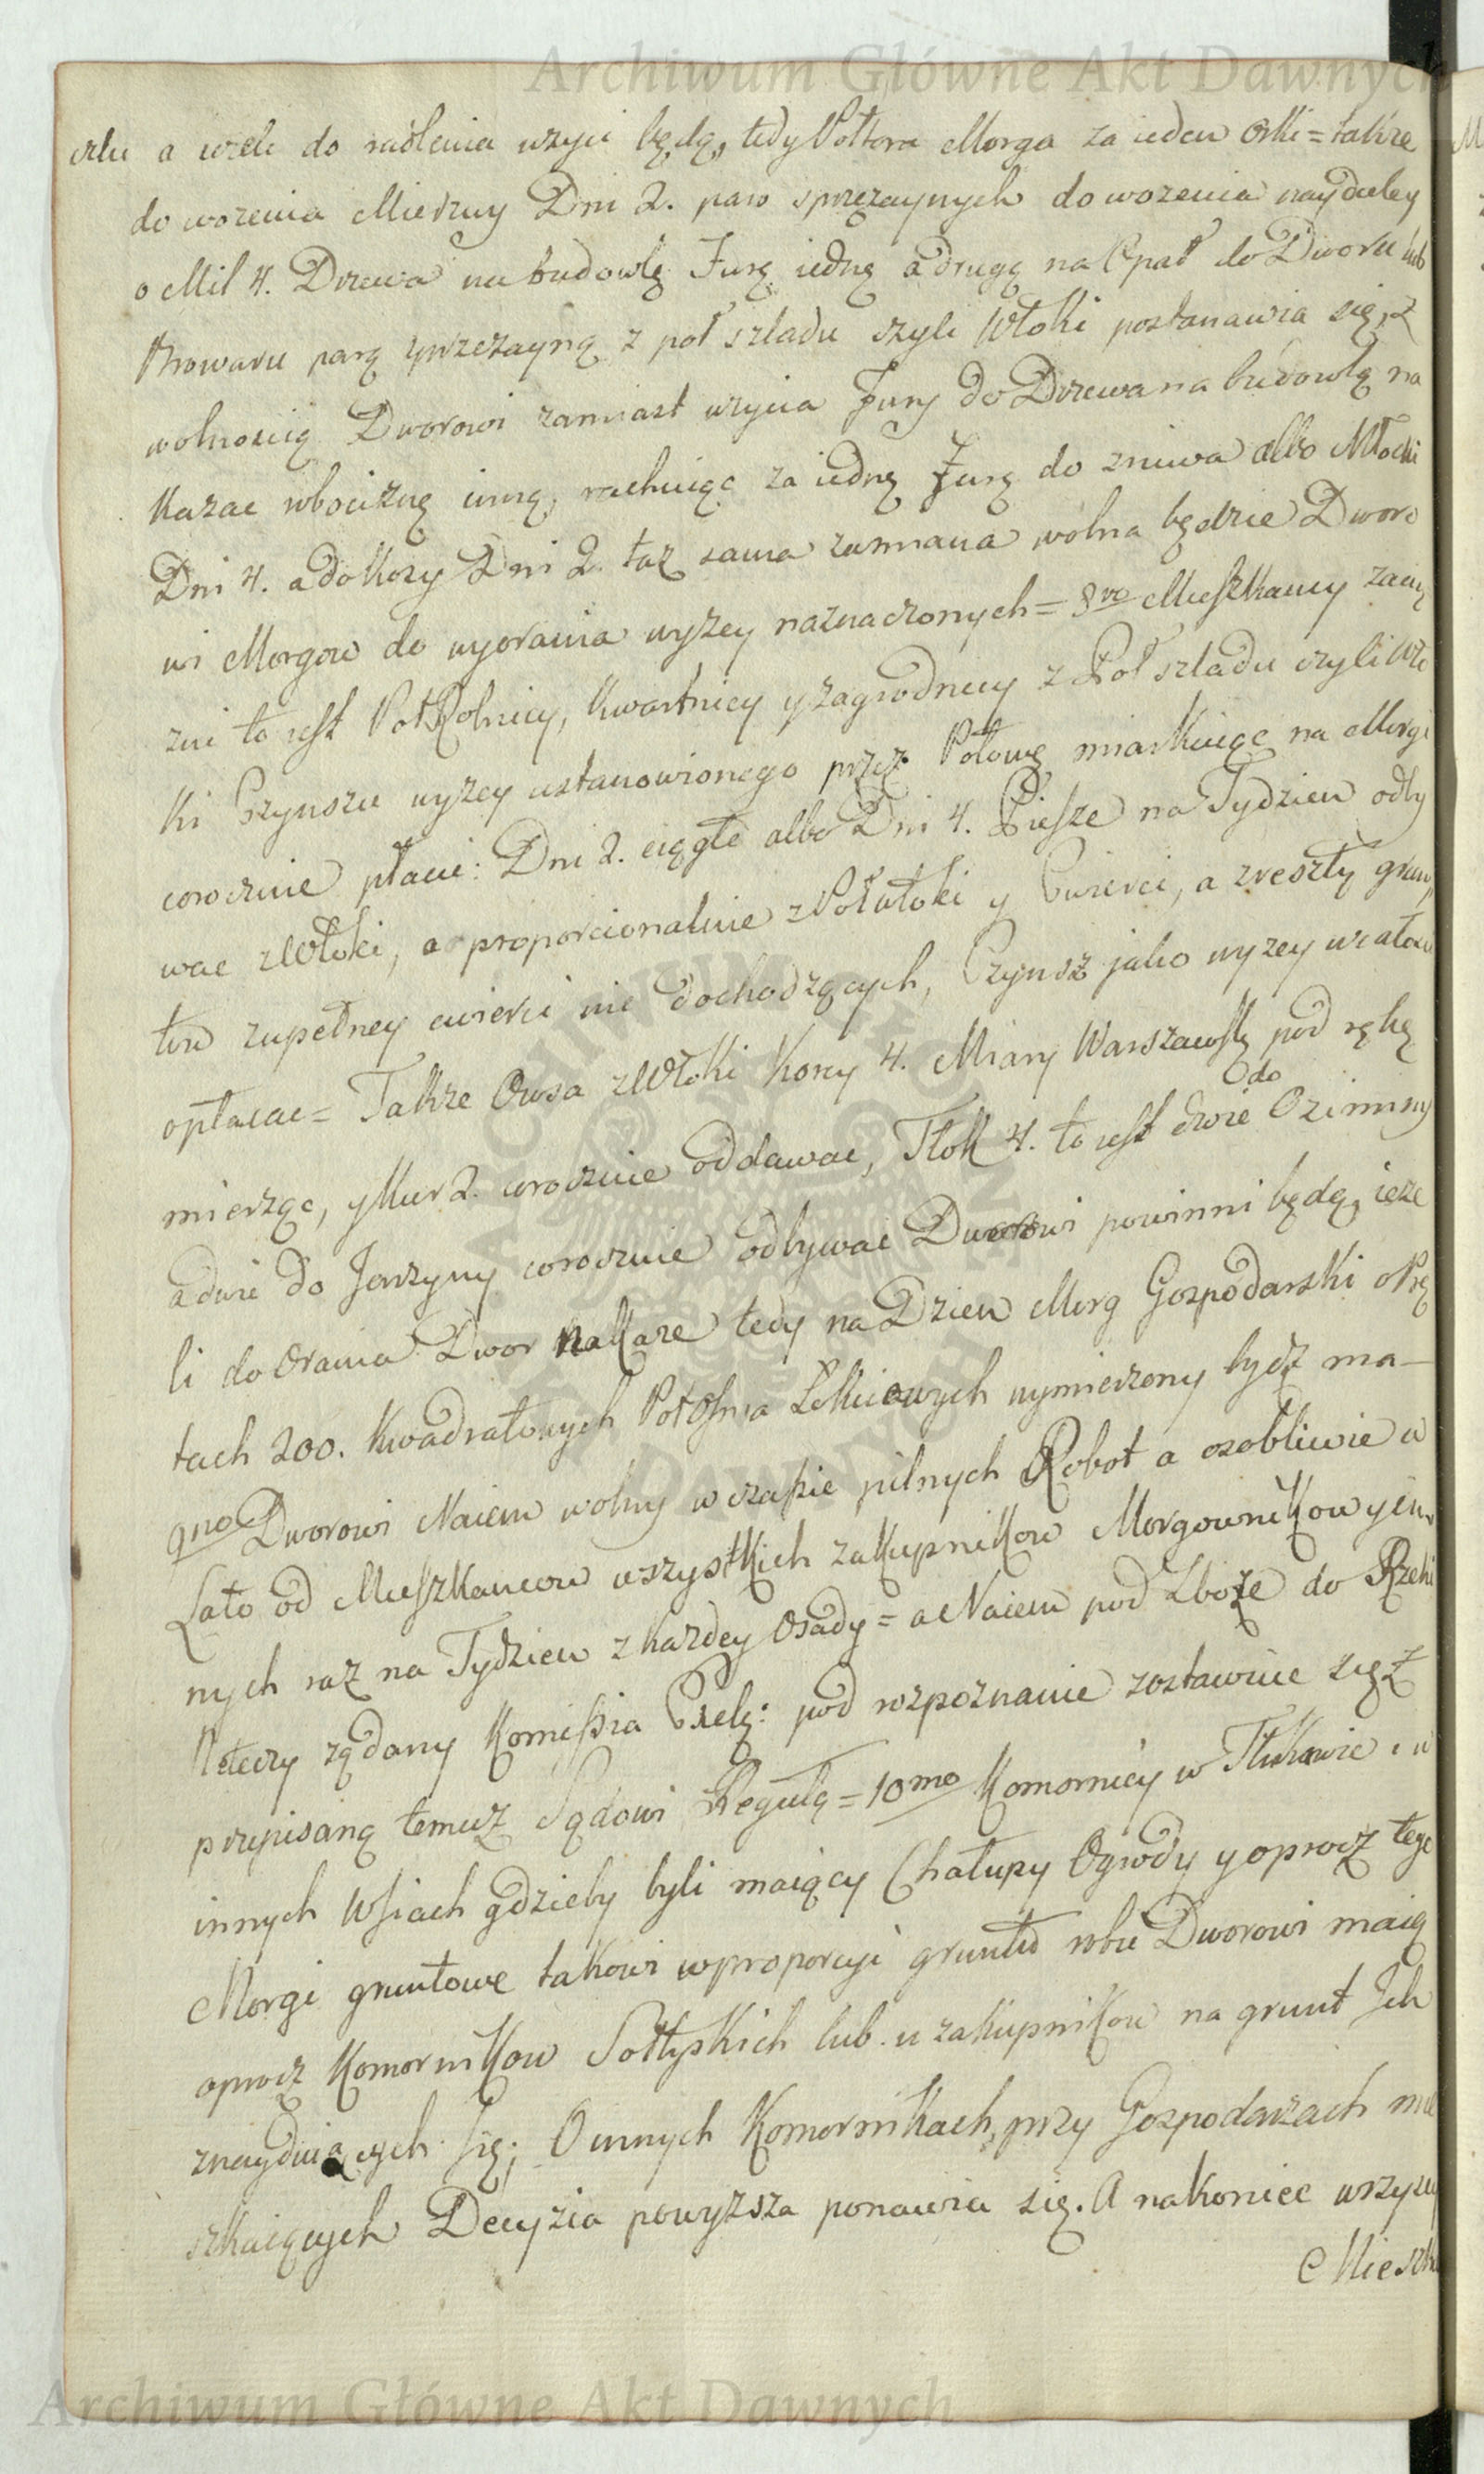 Archiwum Główne Akt Dawnych
a wiele do radlenia użyci będą, tedy Połtora Morga za ieden Orki = także
do wożenia Mierzwy Dni 2. paro sprzężaynych do wożenia naydaley
o Mil 4. Drzewa na budowlę Furę iedną a drugą na Opał do Dworu lub
Browaru parą sprzężayną z poł szladu czyli Włoki postanawia się, z
wolnością Dworowi zamiast użycia Fury do Drzewa na budowlę na
kazac robociznę inną, rachuiąc za iedną Furę do zniwa albo Młocki
Dni 4. a do Kosy Dni 2. taz sama zamiana wolna będzie Dworo
wi Morgow do wyorania wyzey naznaczonych = 8vo Mieszkancy zacią
zni to iest PołRolnicy, Kwartnicy y zagrodnicy z Poł szladu czyli Wło
ki Czynszu wyzey ustanowionego przez Połowę miarkuiąc na Morgi
corocznie płacic: Dni 2. ciągłe albo Dni 4. Piesze na Tydzien odby
wac z Włoki, a proporcionalnie z Połwłoki y Cwierci, a z reszty grun
tow zupełney cwierci nie dochodzących, Czynsz jako wyzey
opłacac = Także Owsa z Włoki Korcy 4. Miary Warszawsk: pod rękę
mierząc, y Kur 2. corocznie oddawac, Tłok 4. to iest dwie do Oziminy
a dwie do Jarzyny corocznie odbywac Dworowi powinni będą, ieże
li do Orania Dwor nakaze tedy na Dzien Morg Gospodarski o Prę
tach 200. Kwadratowych Połosma Łokciowych wymierzony bydz ma —
9no Dworowi Naiem wolny w czasie pilnych Robot a osobliwie w
Lato od Mieszkancow wszystkich zakupnikow Morgownikow y in
nych raz na Tydzien z kazdey Osady = a Naiem pod Zboże do Rzeki
Noteczy ządany Kommissia pod rozpoznanie zostawuie się z
przepisaną temuz Sądowi Regułą = 10mo Komornicy w Tłukawie i w
innych Wsiach gdzieby byli maiący Chałupy Ogrody y oprocz tego
Morgi gruntowe takowi w proporcyi gruntu robic Dworowi maią
oprocz Komornikow Sołtyskich lub u zakupnikow na grunt Ich
znayduiących się; O innych Komornikach, przy Gospodarzach mie
szkaiących Decyzia powyższa ponawia się. A nakoniec wszyscy
Mieszk
Archiwum Główne Akt Dawnych